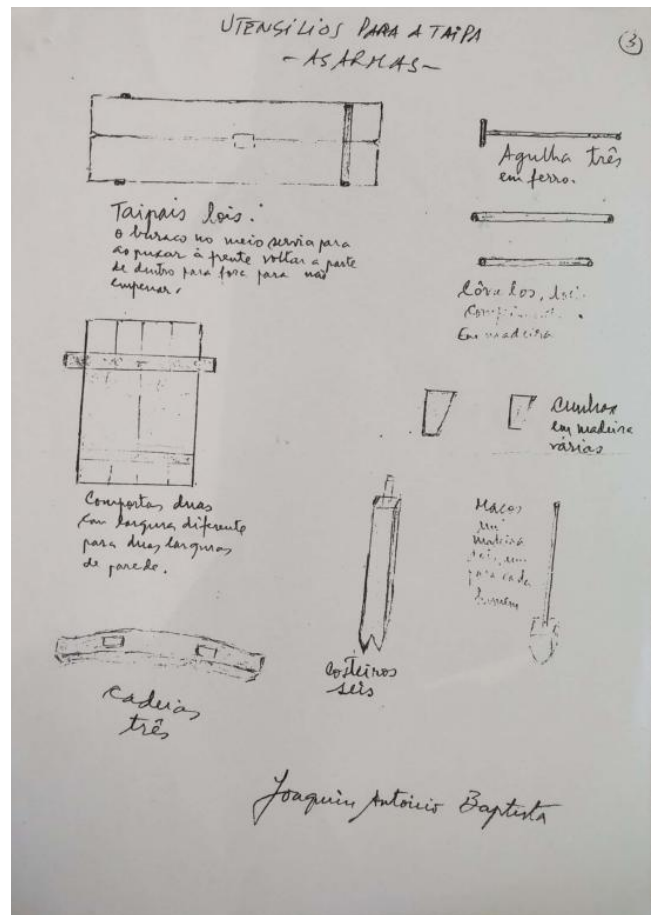 UTENSÍLIOS PARA A TAIPA
3
- AS ARMAS -
Taipais dois.
O buraco no meio servia para
ao puxar à frente voltar a parte
de dentro para fora para não
empenar.
Agulha três
em ferro.
dois
Em madeira
Cunhas
em madeira
várias
Comportas duas
com largura diferente
para duas larguras
de parede.
Maços
em
madeira
um
para cada
homem
Costeiros
seis
Cadeias
três
Joaquim António Baptista